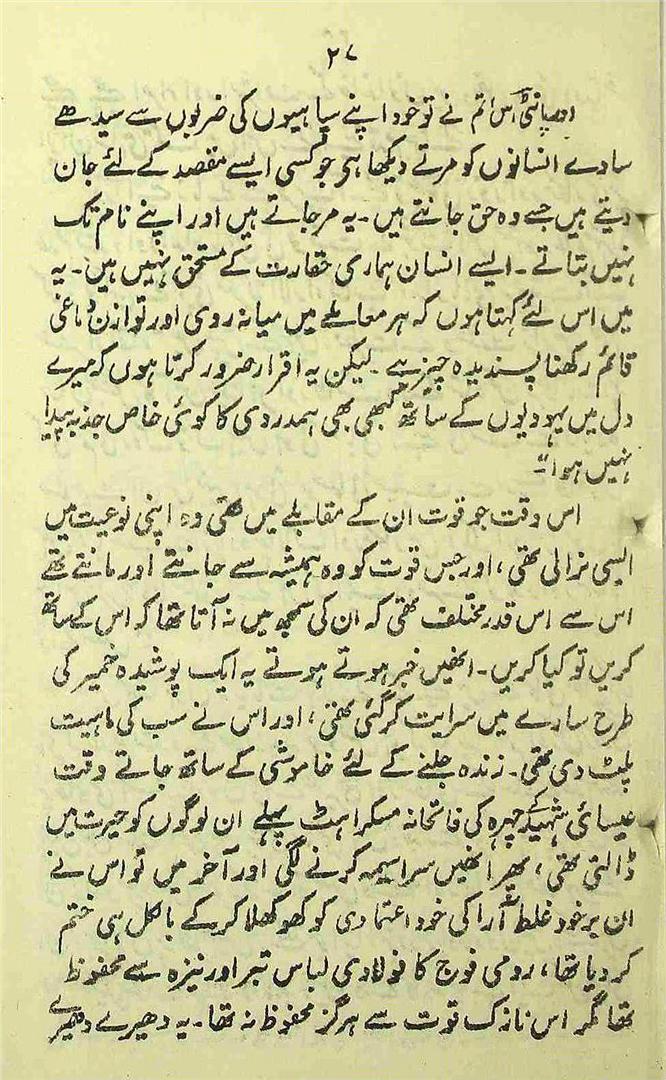 ۲۷
اس اتم نے تو خود اپنے سپاہیوں کی ضربوں سے سیدھے
سادے انسانوں کو مرتے دیکھا ہی جو کسی ایسے مقصد کے لئے جان
دیتے ہیں جسے وہ حق جانتے ہیں۔ یہ مرجاتے ہیں اور اپنے نام تک
نہیں بتاتے۔ ایسے انسان ہماری حقارت کے مستحق نہیں ہیں۔ یہ
میں اس لئے کہتا ہوں کہ ہر معاملے میں میانہ روی اور توازن دماغی
قائم رکھنا پسندیدہ چیز ہے۔ لیکن یہ اقرار ضرور کرتا ہوں کہ میرے
دل میں یہودیوں کے ساتھ کبھی بھی ہمدردی کا کوئی خاص جذبہ پیدا
نہیں ہوا"
اس وقت جو قوت ان کے مقابلے میں تھی وہ اپنی نوعیت میں
ایسی نرالی تھی، اور جس قوت کو وہ ہمیشہ سے جانتے اور مانتے تھے
اس سے اس قدر مختلف تھی کہ ان کی سمجھ میں نہ آتا تھا کہ اس کے ساتھ
کریں تو کیا کریں۔ انھیں خبر ہوتے ہوتے یہ ایک پوشیدہ خمیر کی
طرح سارے میں سرایت کر گئی تھی، اور اس نے سب کی ماہیت
پلٹ دی تھی۔ زندہ جلنے کے لئے خاموشی کے ساتھ جاتے وقت
عیسائی شہید کے چہرہ کی فاتحانہ مسکراہٹ پہلے ان لوگوں کو حیرت میں
ڈالتی تھی، پھر انھیں سراسیمہ کرنے لگی اور آخر میں تو اس نے
ان بر خود غلط آرا کی خود اعتمادی کو کھوکھلا کر کے بالکل ہی ختم
کر دیا تھا، رومی فوج کا فولادی لباس تبر اور نیزہ سے محفوظ
تھا مگر اس نازک قوت سے ہرگز محفوظ نہ تھا۔ یہ دھیرے دھیرے